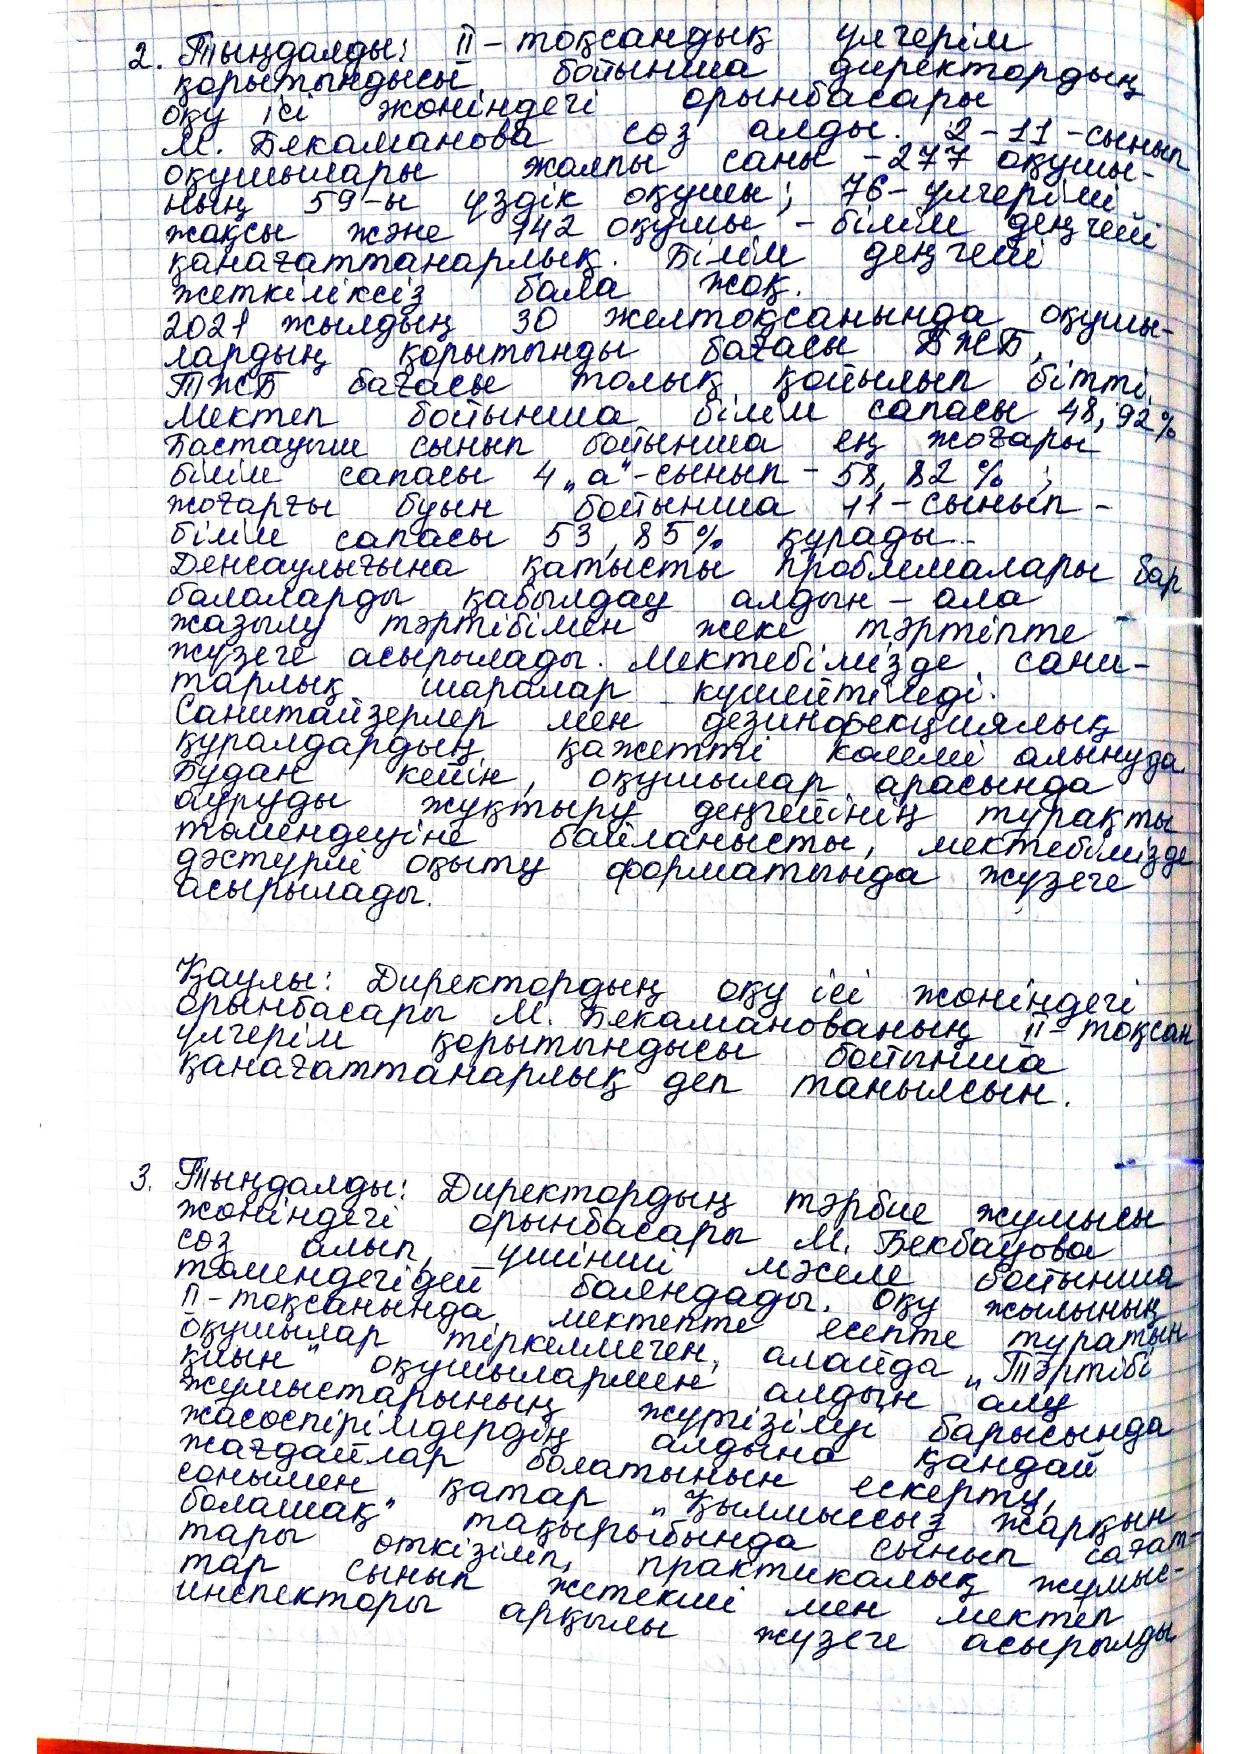 2. Тыңдалды: II-тоқсандық үлгерім
қорытындысы бойынша директордың
оқу ісі жөніндегі орынбасары
М. Бекаманова сөз алды. 2-11-сынып
оқушылары жалпы саны - 277 оқушы-
ның 59-ы үздік оқушы; 76-үлгерімі
жақсы және 142 оқушы - білім деңгейі
қанағаттанарлық. Білім деңгейі
жеткіліксіз бала жоқ.
2021 жылдың 30 желтоқсанында оқушы-
лардың қорытынды бағасы БЖБ,
ТЖБ бағасы толық қойылып бітті.
Мектеп бойынша білім сапасы 48,92%
Бастауыш сынып бойынша ең жоғары
білім сапасы 4 „а"-сынып - 58,82% ;
жоғарғы буын бойынша 11-сынып -
білім сапасы 53,85% құрады.
Денсаулығына қатысты проблемалары бар
балаларды қабылдау алдын-ала
жазылу тәртібімен жеке тәртіпте
жүзеге асырылады. Мектебімізде сани-
тарлық шаралар күшейтіледі.
Санитайзерлер мен дезинфекциялық
құралдардың қажетті көлемі алынуда.
Бұдан кейін, оқушылар арасында
ауруды жұқтыру деңгейінің тұрақты
төмендеуіне байланысты, мектебімізде
дәстүрлі оқыту форматында жүзеге
асырылады.
Қаулы: Директордың оқу ісі жөніндегі
орынбасары М. Бекаманованың II-тоқсан
үлгерім қорытындысы бойынша
қанағаттанарлық деп танылсын.
3. Тыңдалды: Директордың тәрбие жұмысы
жөніндегі орынбасары М. Бекбауова
сөз алып, үшінші мәселе бойынша
төмендегідей баяндады. Оқу жылының
II-тоқсанында, мектепте есепте тұратын
оқушылар тіркелмеген, алайда „Тәртібі
қиын" оқушылармен алдын алу
жұмыстарының жүргізілуі барысында
жасөспірімдердің алдына қандай
жағдайлар болатынын ескерту,
сонымен қатар „Қылмыссыз жарқын
болашақ" тақырыбында сынып сағат-
тары өткізіліп, практикалық жұмыс-
тар сынып жетекші мен мектеп
инспекторы арқылы жүзеге асырылды